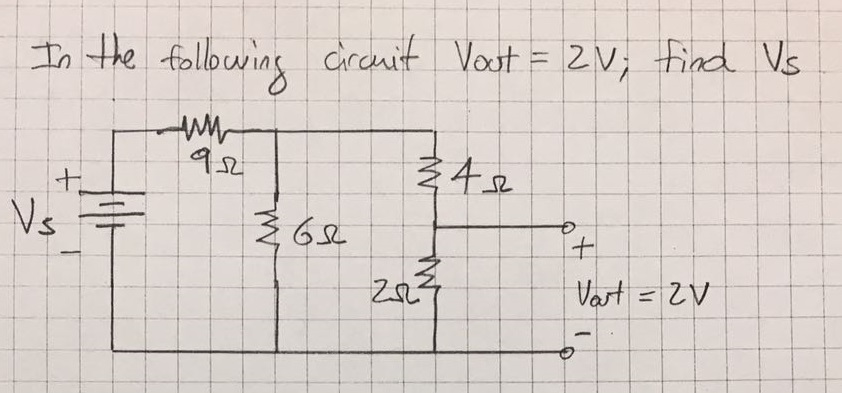 In the following circuit Vout = 2V; find Vs
9Ω
+
4Ω
Vs
6Ω
+
-
2Ω
Vout = 2V
-